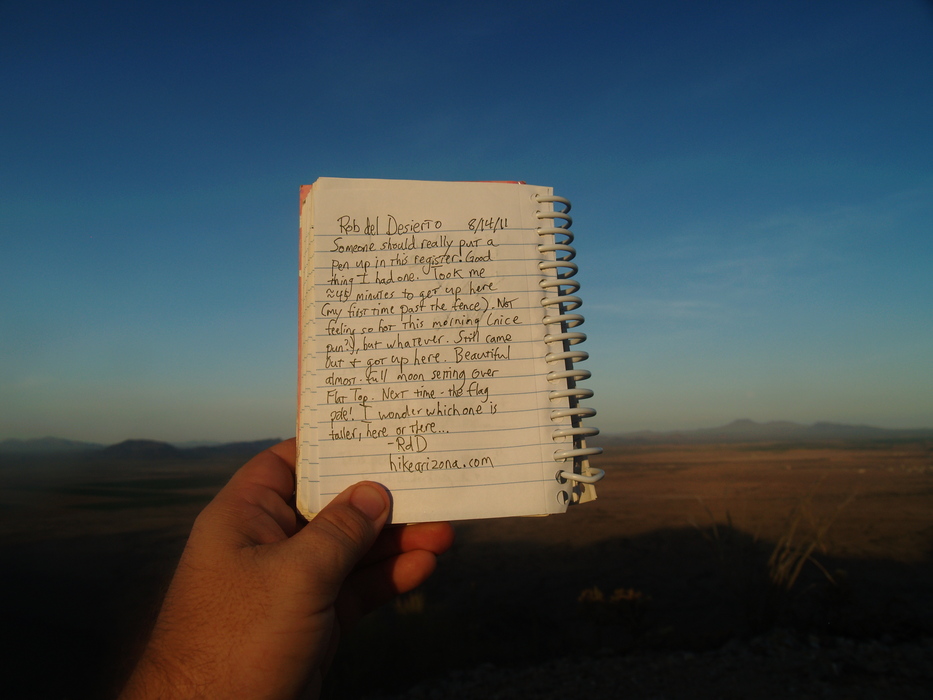 Rob del Desierto 8/14/11
Someone should really put a
pen up in this register. Good
thing I had one. Took me
≈45 minutes to get up here
(my first time past the fence). Not
feeling so hot this morning (nice
pun?), but whatever. Still came
out + got up here. Beautiful
almost-full moon setting over
Flat Top. Next time - the flag
pole! I wonder which one is
taller, here or there...
-RdD
hikearizona.com